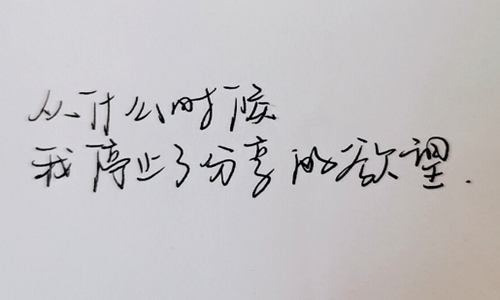 从什么时候
我停止了分享的欲望.